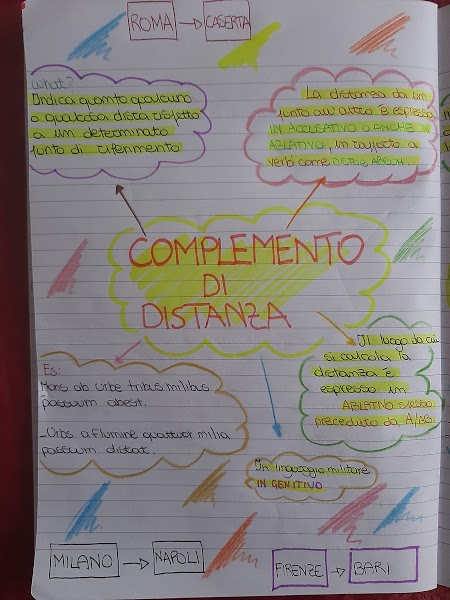 ROMA → CASERTA
what?
Indica quanto qualcuno
o qualcosa dista rispetto
a un determinato
punto di riferimento
La distanza da un
punto all'altro è espressa
IN ACCUSATIVO O ANCHE IN
ABLATIVO, in rapporto a
verbi come DISTO E ABSUM.
COMPLEMENTO
DI
DISTANZA
Es:
Mons ab urbe tribus milibus
passuum abest.
-Urbs a flumine quattuor milia
passuum distat.
Il luogo da cui
si calcola la
distanza è
espresso in
ABLATIVO spesso
preceduto da A/AB.
In linguaggio militare
IN GENITIVO
MILANO → NAPOLI
FIRENZE → BARI